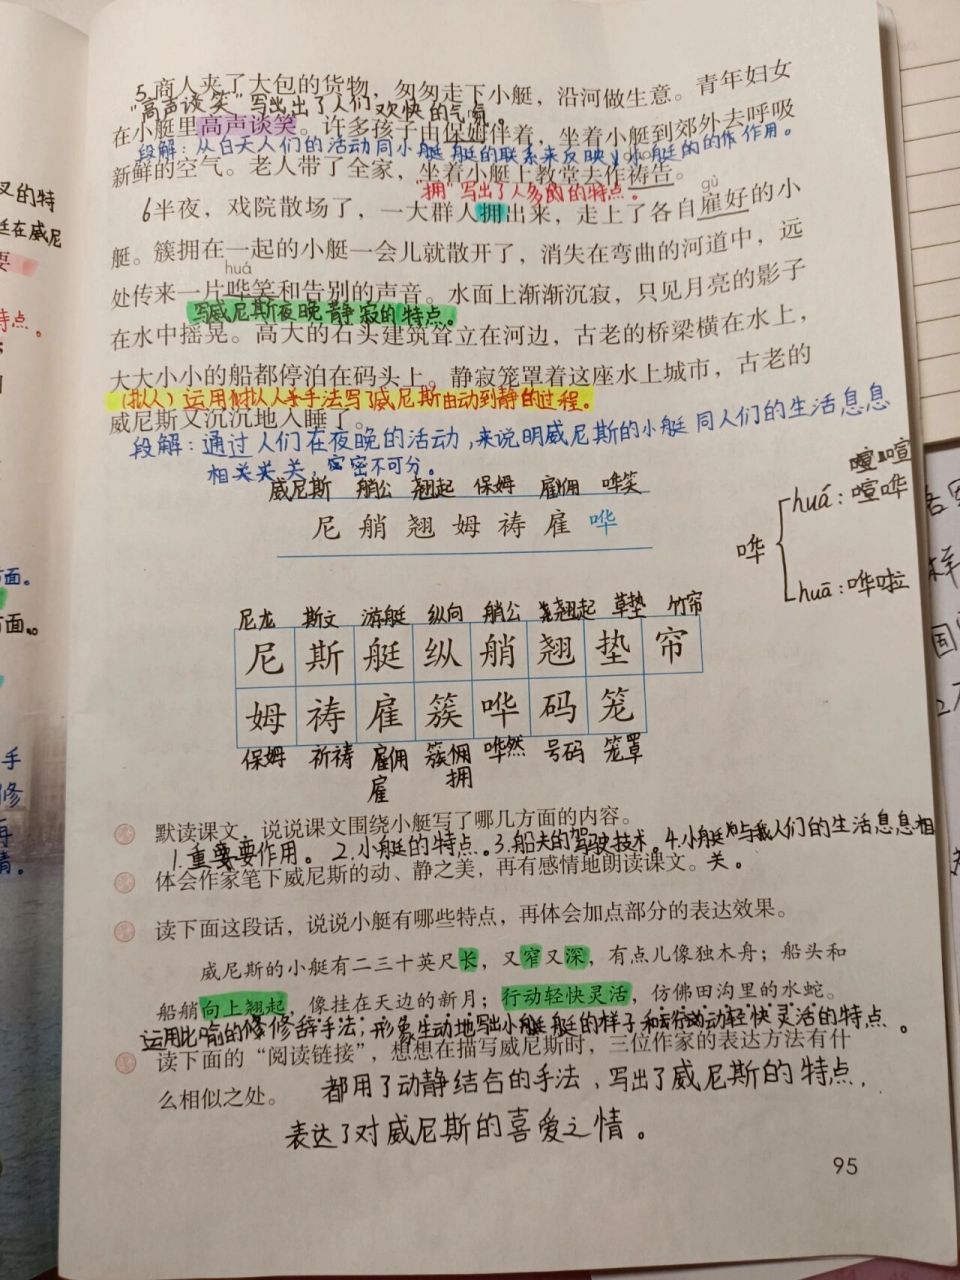 5.商人夹了大包的货物，匆匆走下小艇，沿河做生意。青年妇女
"高声谈笑"写出出了人们欢快的气氛。
在小艇里高声谈笑。许多孩子由保姆伴着，坐着小艇到郊外去呼吸
段解：从白天人们的活动同小艇艇的联系来反映小艇的的作作用。
新鲜的空气。老人带了全家，坐着小艇上教堂去作祷告。
"拥"写出了人多的的特点。
gù
6半夜，戏院散场了，一大群人拥出来，走上了各自雇好的小
艇。簇拥在一起的小艇一会儿就散开了，消失在弯曲的河道中，远
huá
处传来一片哗笑和告别的声音。水面上渐渐沉寂，只见月亮的影子
写威尼斯夜晚静寂的特点。
在水中摇晃。高大的石头建筑耸立在河边，古老的桥梁横在水上，
大大小小的船都停泊在码头上。静寂笼罩着这座水上城市，古老的
（拟人）运用拟人手法写了威尼斯由动到静的过程。
威尼斯又沉沉地入睡了。
段解：通过人们在夜晚的活动，来说明威尼斯的小艇同人们的生活息息
相关关关，密密不可分。
威尼斯 艄公 翘起 保姆 雇佣 哗笑
尼 艄 翘 姆 祷 雇 哗
喧喧
huá：喧哗
哗
huā：哗啦
尼龙 斯文 游艇 纵向 艄公 翘起 草垫 竹帘
尼 斯 艇 纵 艄 翘 垫 帘
姆 祷 雇 簇 哗 码 笼
保姆 祈祷 雇佣 簇佣 哗然 号码 笼罩
雇 拥
默读课文，说说课文围绕小艇写了哪几方面的内容。
1.重要要作用。2.小艇的特点。3.船夫的驾驶技术。4.小艇与人们的生活息息相
关。
体会作家笔下威尼斯的动、静之美，再有感情地朗读课文。
读下面这段话，说说小艇有哪些特点，再体会加点部分的表达效果。
威尼斯的小艇有二三十英尺长，又窄又深，有点儿像独木舟；船头和
船艄向上翘起，像挂在天边的新月；行动轻快灵活，仿佛田沟里的水蛇。
运用比喻的修修辞手法；形象生动地写出小艇艇的样子和行动动轻快灵活的特点。
读下面的"阅读链接"，想想在描写威尼斯时，三位作家的表达方法有什
么相似之处。
都用了动静结合的手法，写出了威尼斯的特点，
表达了对威尼斯的喜爱之情。
95
又的特
廷在威尼
要
特点。
面。
面。
手
修
再
情。